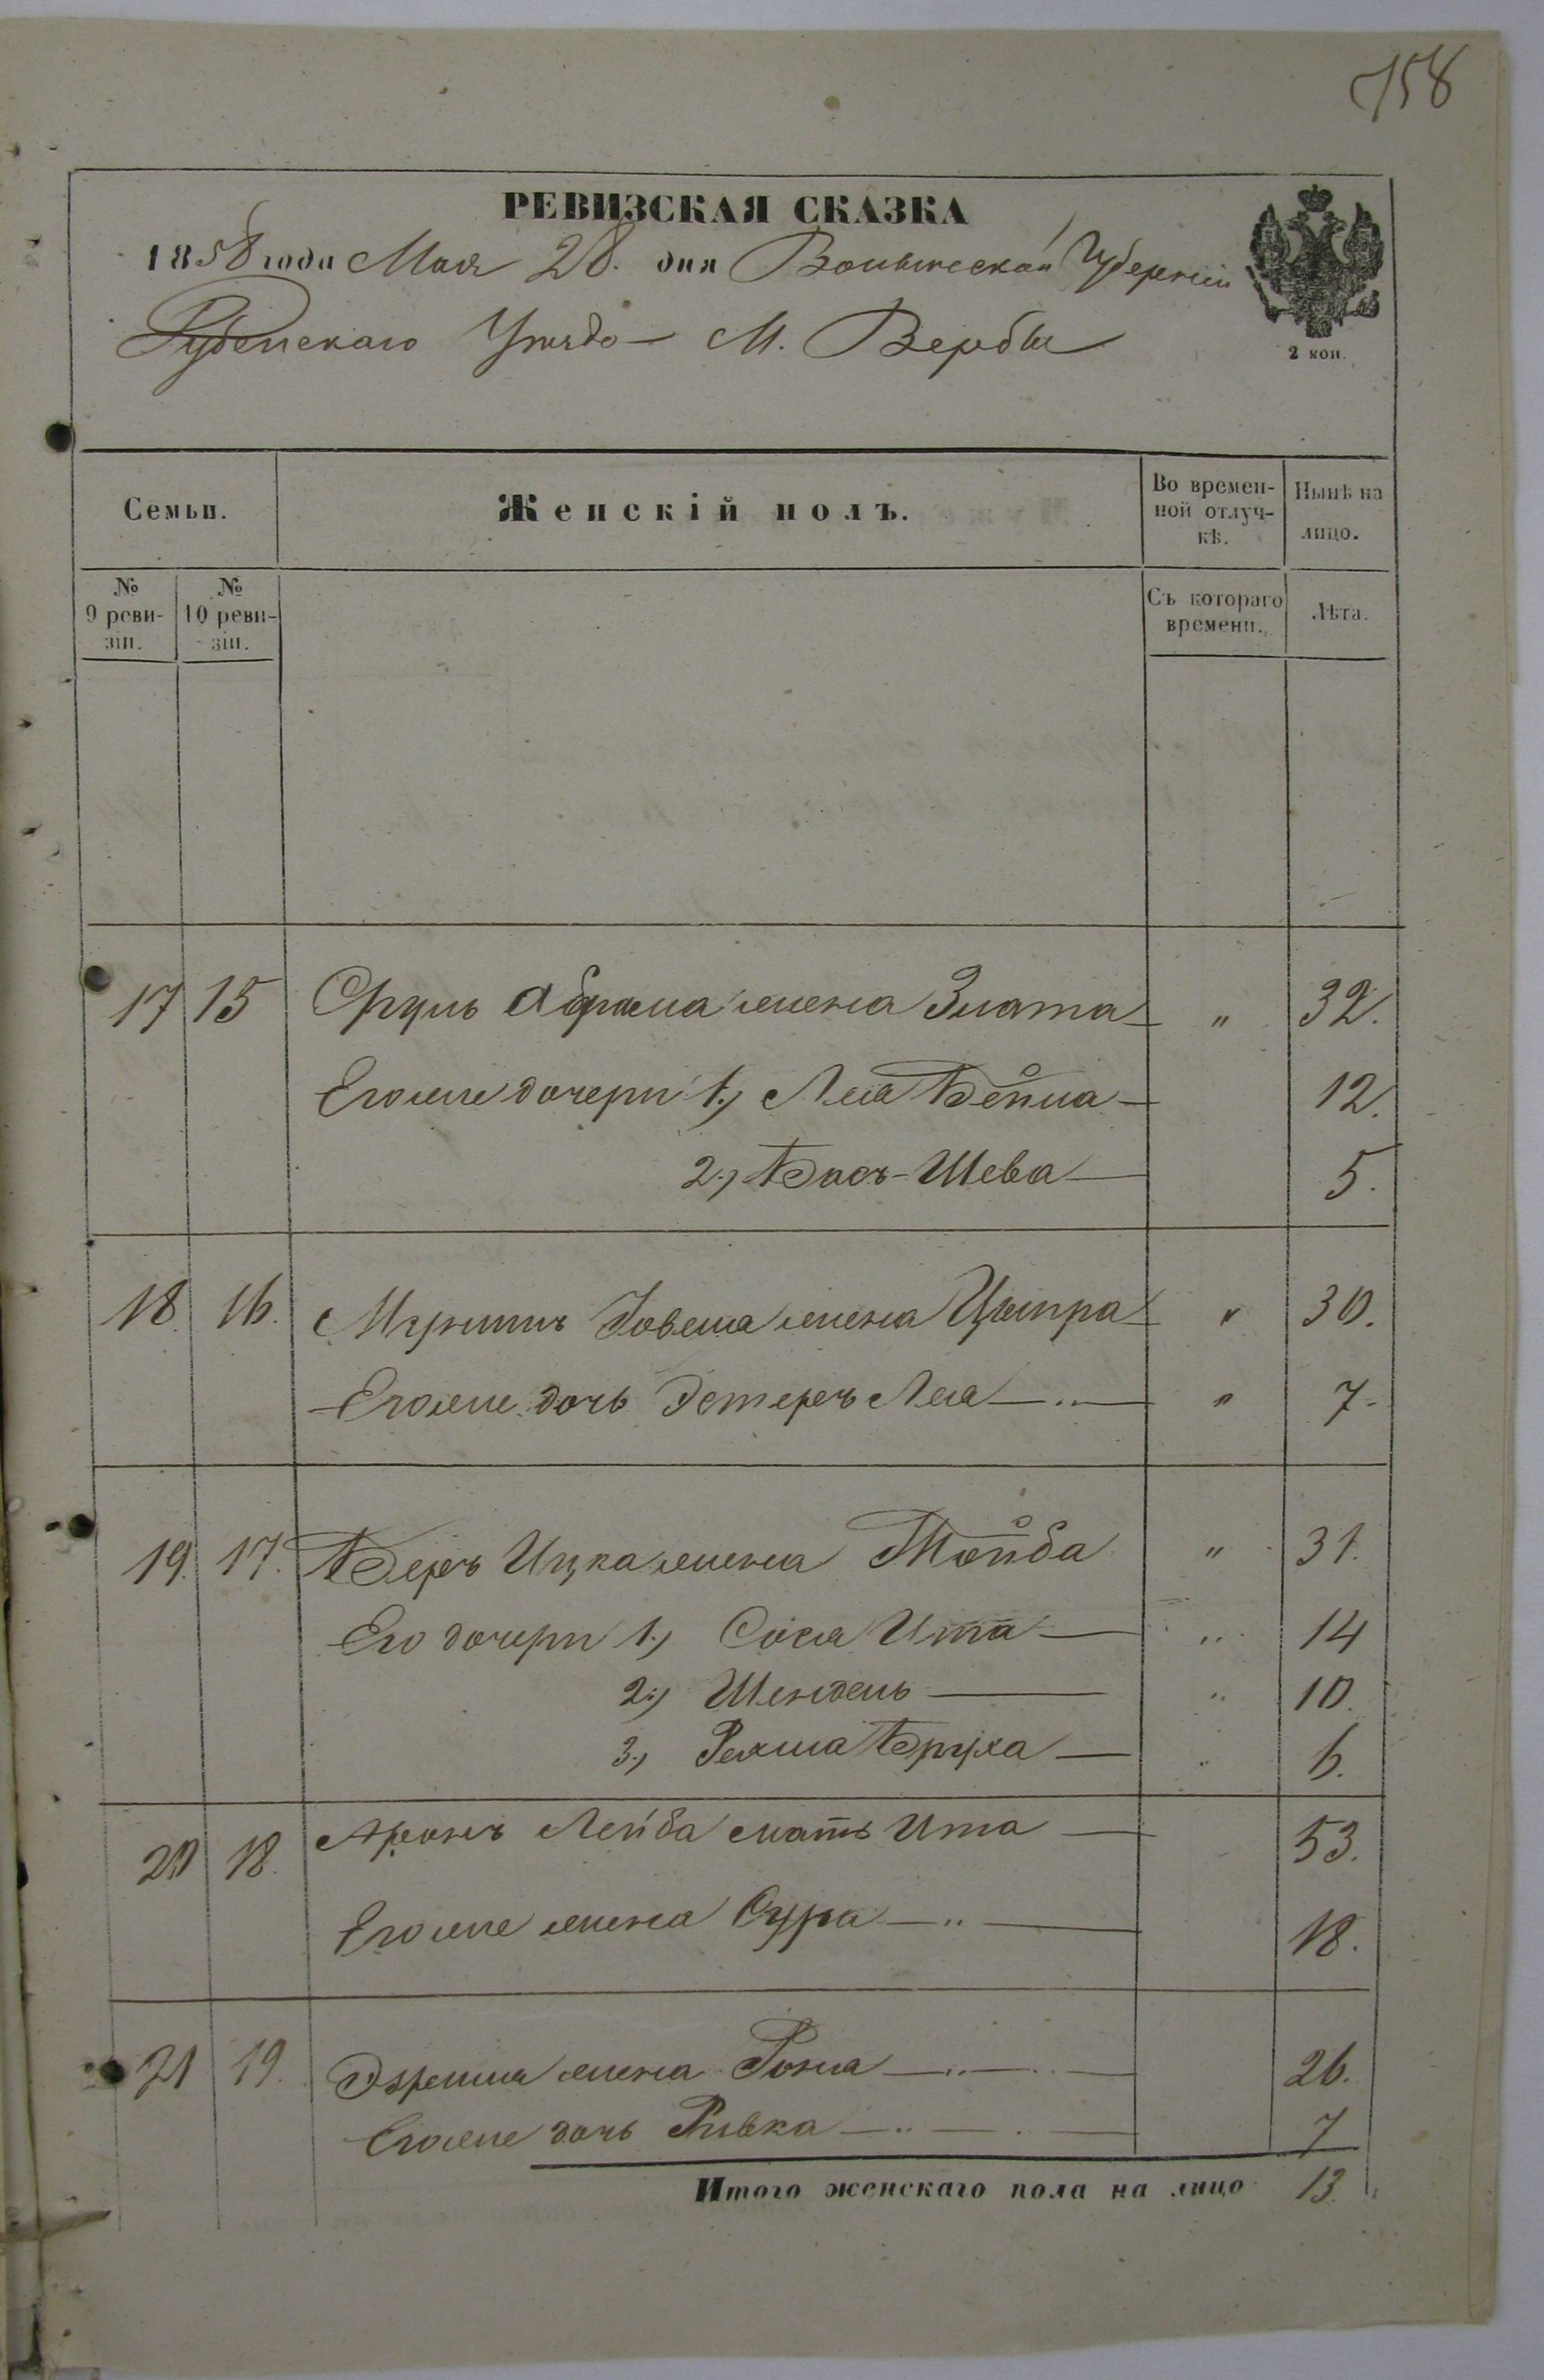 158
РЕВИЗСКАЯ СКАЗКА
1858 года Мая 28. дня Волынской Губерніи
Дубенскаго Уѣзда — М. Вербы
2 коп.
Семьи.
Женскій полъ.
Во времен-
ной отлуч-
кѣ.
Нынѣ на
лицо.
№
9 реви-
зіи.
№
10 реви-
зіи.
Съ котораго
времени.
Лѣта.
17 15 Сруль Абрама жена Злата — " 32.
Его же дочери 1.) Леа Бейла — 12.
2.) Бась-Шева — 5.
18. 16. жена Ципра — " 30.
Его же дочь Эстеръ Леа — .. — " 7.
19. 17. Беръ Ицка жена Тойба " 31.
Его дочери 1.) Сося Ита — " 14
2.) Шендель — " 10.
3.) Бруха — " 6.
20 18. Аронъ Лейба мать Ита — 53.
Его же жена Сура — .. — 18.
21 19. жена — .. — 26.
Его же дочь Ривка — .. — 7
Итого женскаго пола на лицо 13.